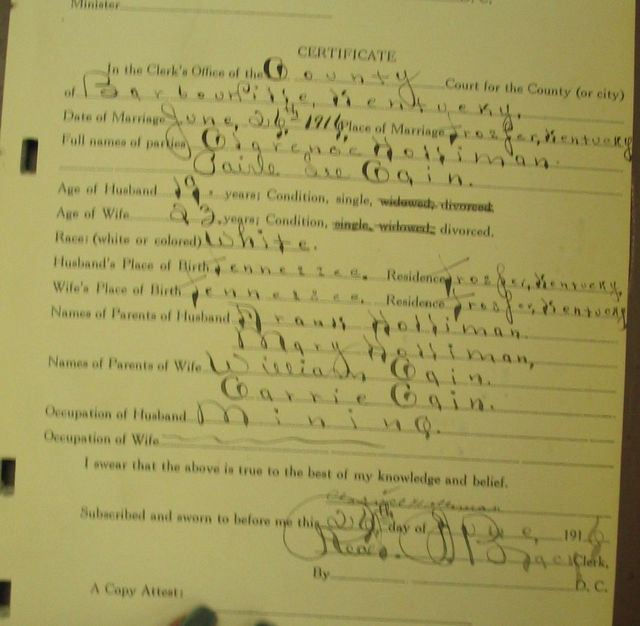 Minister
CERTIFICATE
In the Clerk's Office of the County Court for the County (or city)
of Barbourville, Kentucky.
Date of Marriage June, 26th 1916 Place of Marriage Trosper, Kentucky
Full names of parties Clarence Holliman.
Cain.
Age of Husband 19. years; Condition, single, widowed, divorced.
Age of Wife 23. years; Condition, single, widowed, divorced.
Race: (white or colored) White.
Husband's Place of Birth Tennessee. Residence Trosper, Kentucky.
Wife's Place of Birth Tennessee. Residence Trosper, Kentucky
Names of Parents of Husband Frank Holliman.
Mary Holliman,
Names of Parents of Wife William Cain.
Carrie Cain.
Occupation of Husband Mining.
Occupation of Wife
I swear that the above is true to the best of my knowledge and belief.
Holliman
Subscribed and sworn to before me this 26th day of June, 1916
Read. Clerk,
By D. C.
A Copy Attest: